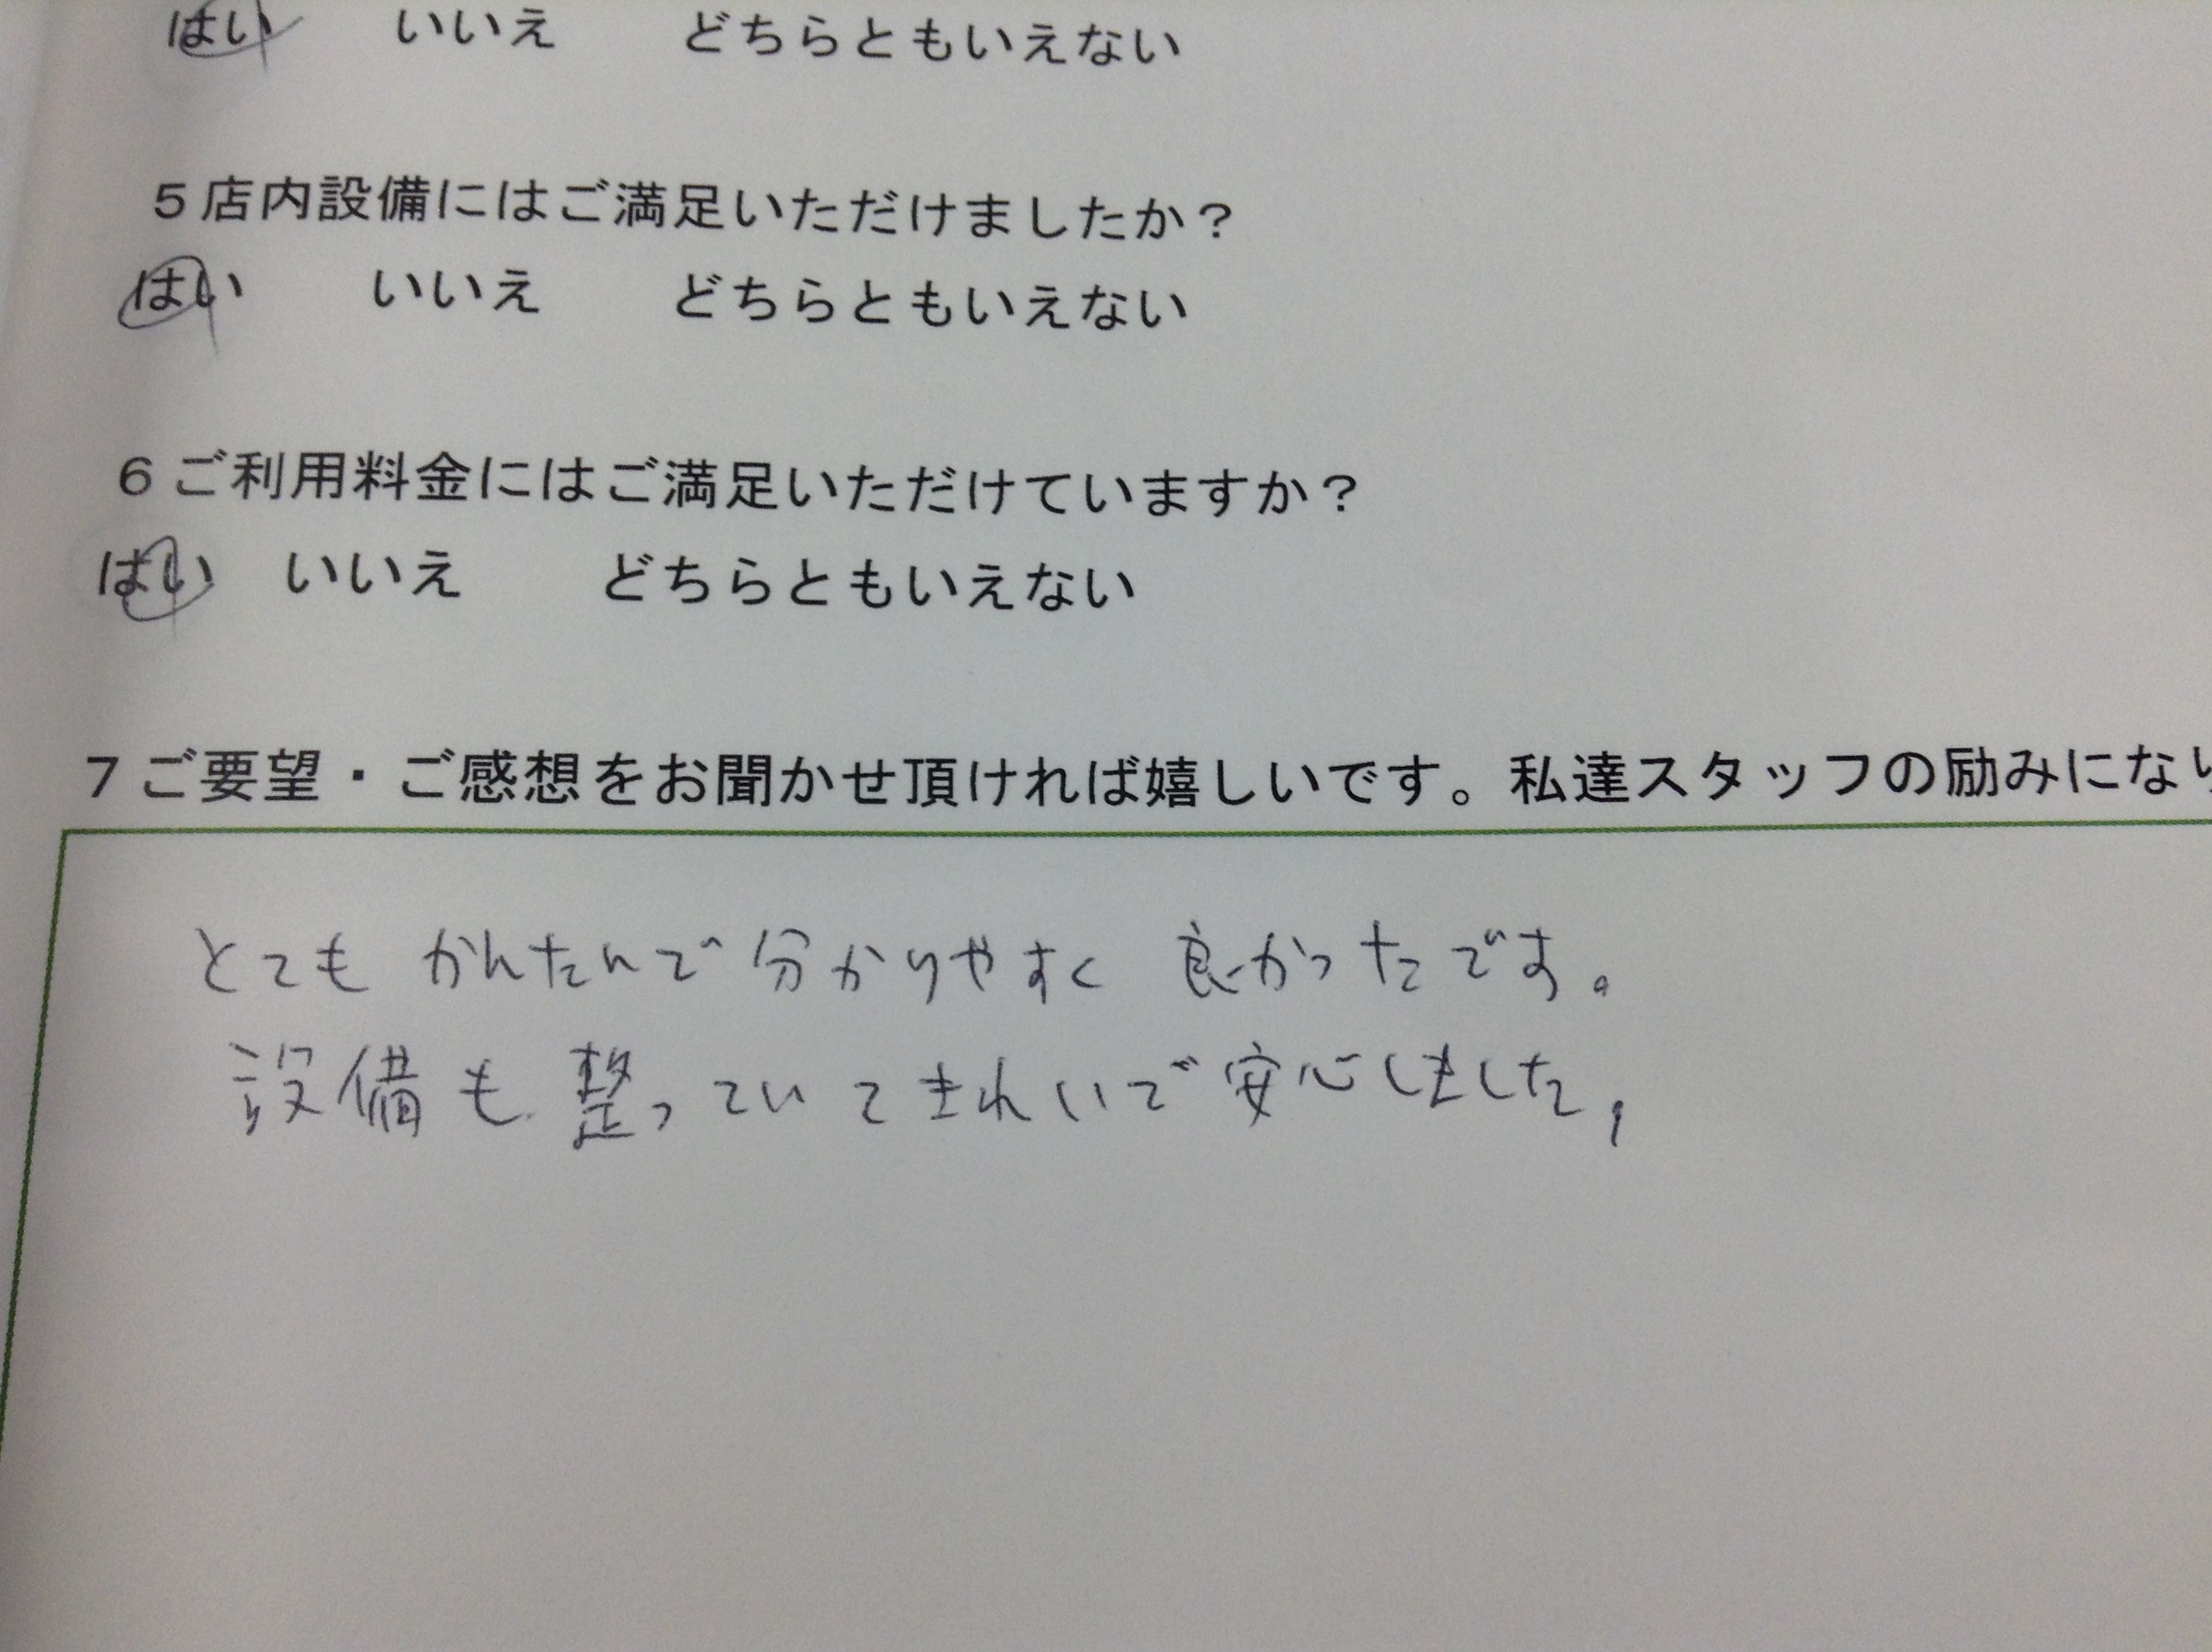 はい いいえ どちらともいえない
5店内設備にはご満足いただけましたか?
はい いいえ どちらともいえない
6ご利用料金にはご満足いただけていますか?
はい いいえ どちらともいえない
7ご要望・ご感想をお聞かせ頂ければ嬉しいです。私達スタッフの励みになり
とても かんたんで 分かりやすく 良かったです。
設備も整っていてきれいで安心しました,